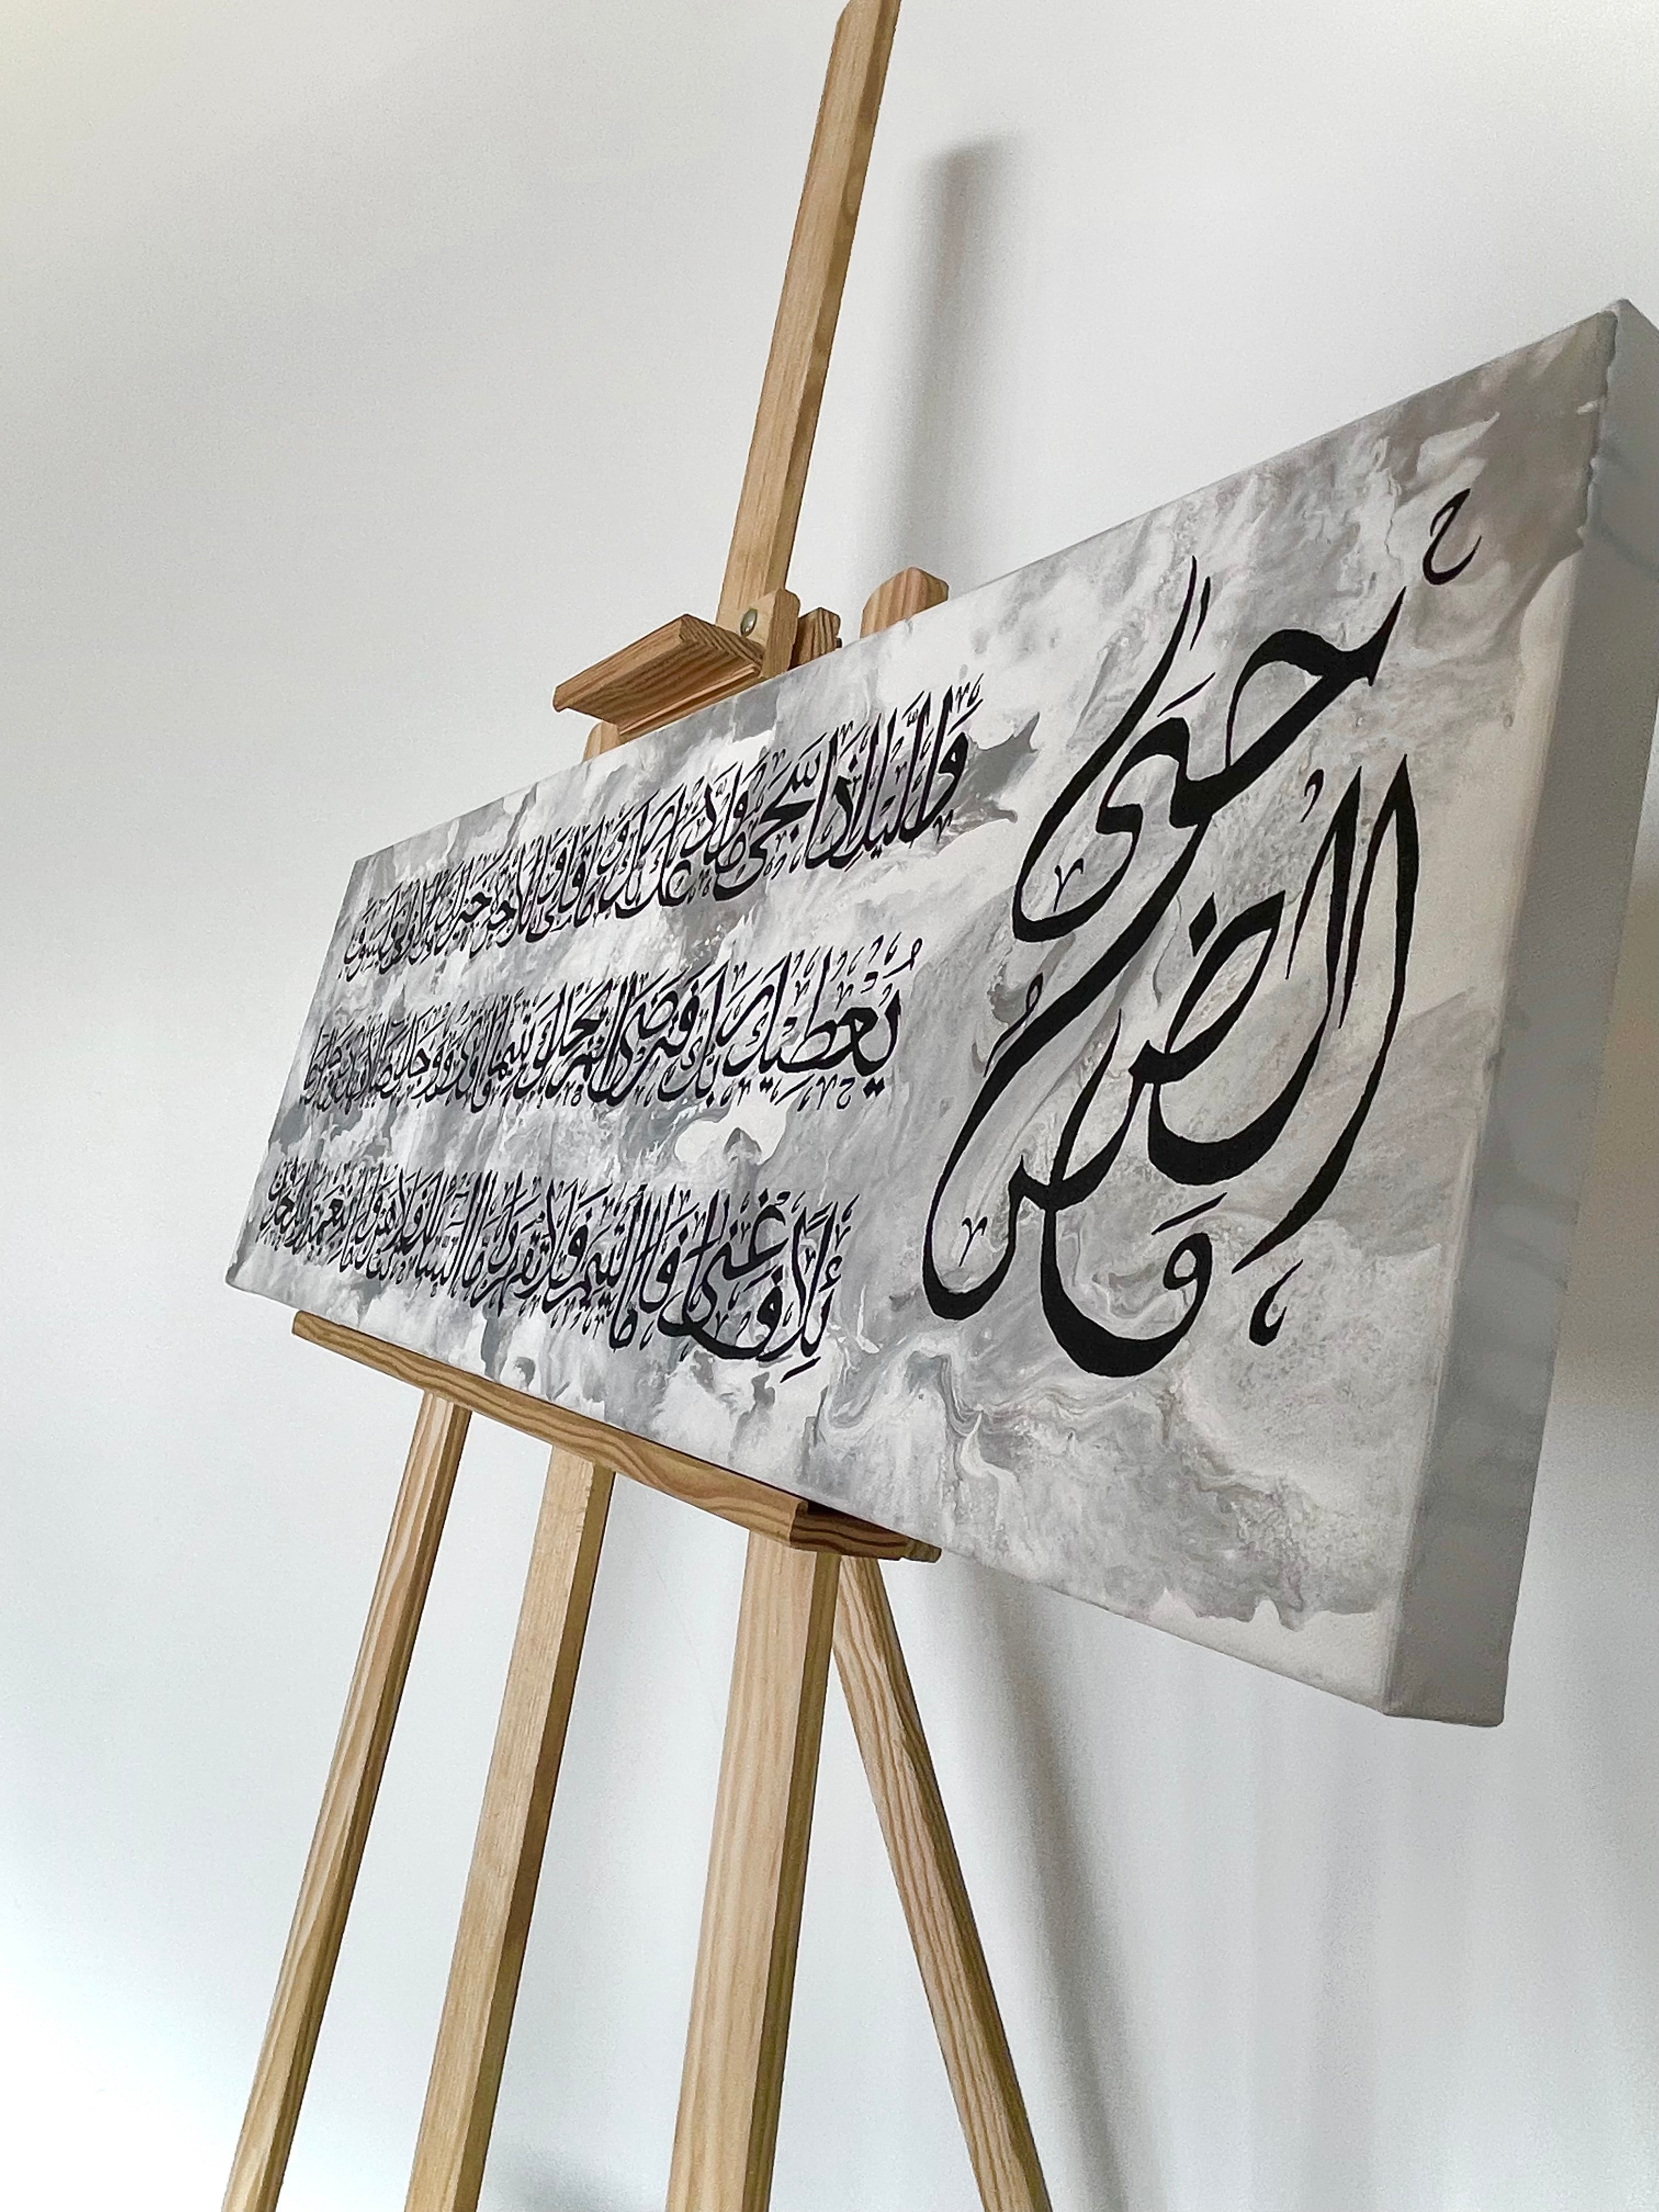 والضحى
والليل اذا سجى ما ودعك ربك وما قلى وللاخرة خير لك من الاولى ولسوف
يعطيك ربك فترضى الم يجدك يتيما فاوى ووجدك ضالا فهدى ووجدك عا
ئلا فاغنى فاما اليتيم فلا تقهر واما السائل فلا تنهر واما بنعمة ربك فحدث